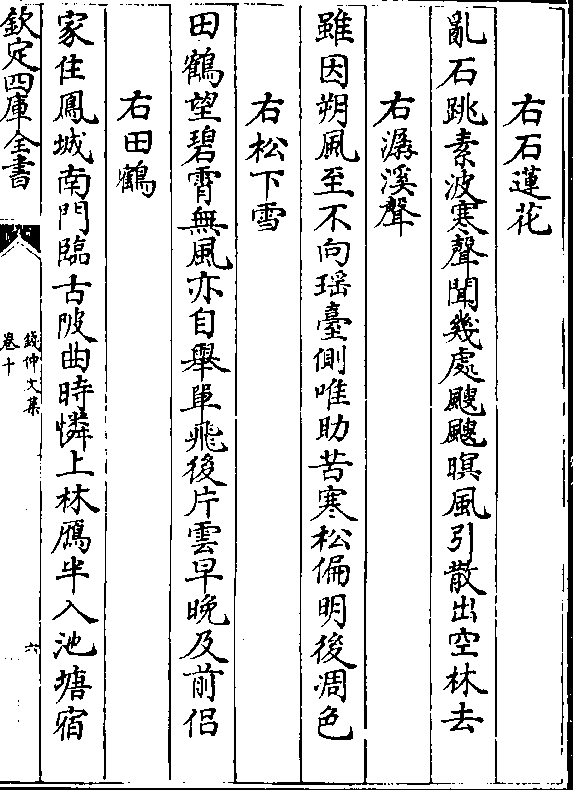 右石蓮花
亂石跳素波寒聲聞幾處颼颼暝風引散出空林去
右潺溪聲
雖因朔風至不向瑶臺側唯助苦寒松偏明後凋色
右松下雪
田鶴望碧霄無風亦自舉單飛後片雲早晚及前侣
右田鶴
家住鳳城南門臨古陂曲時憐上林鴈半入池塘宿
欽定四庫全書
錢仲文集
卷十
六